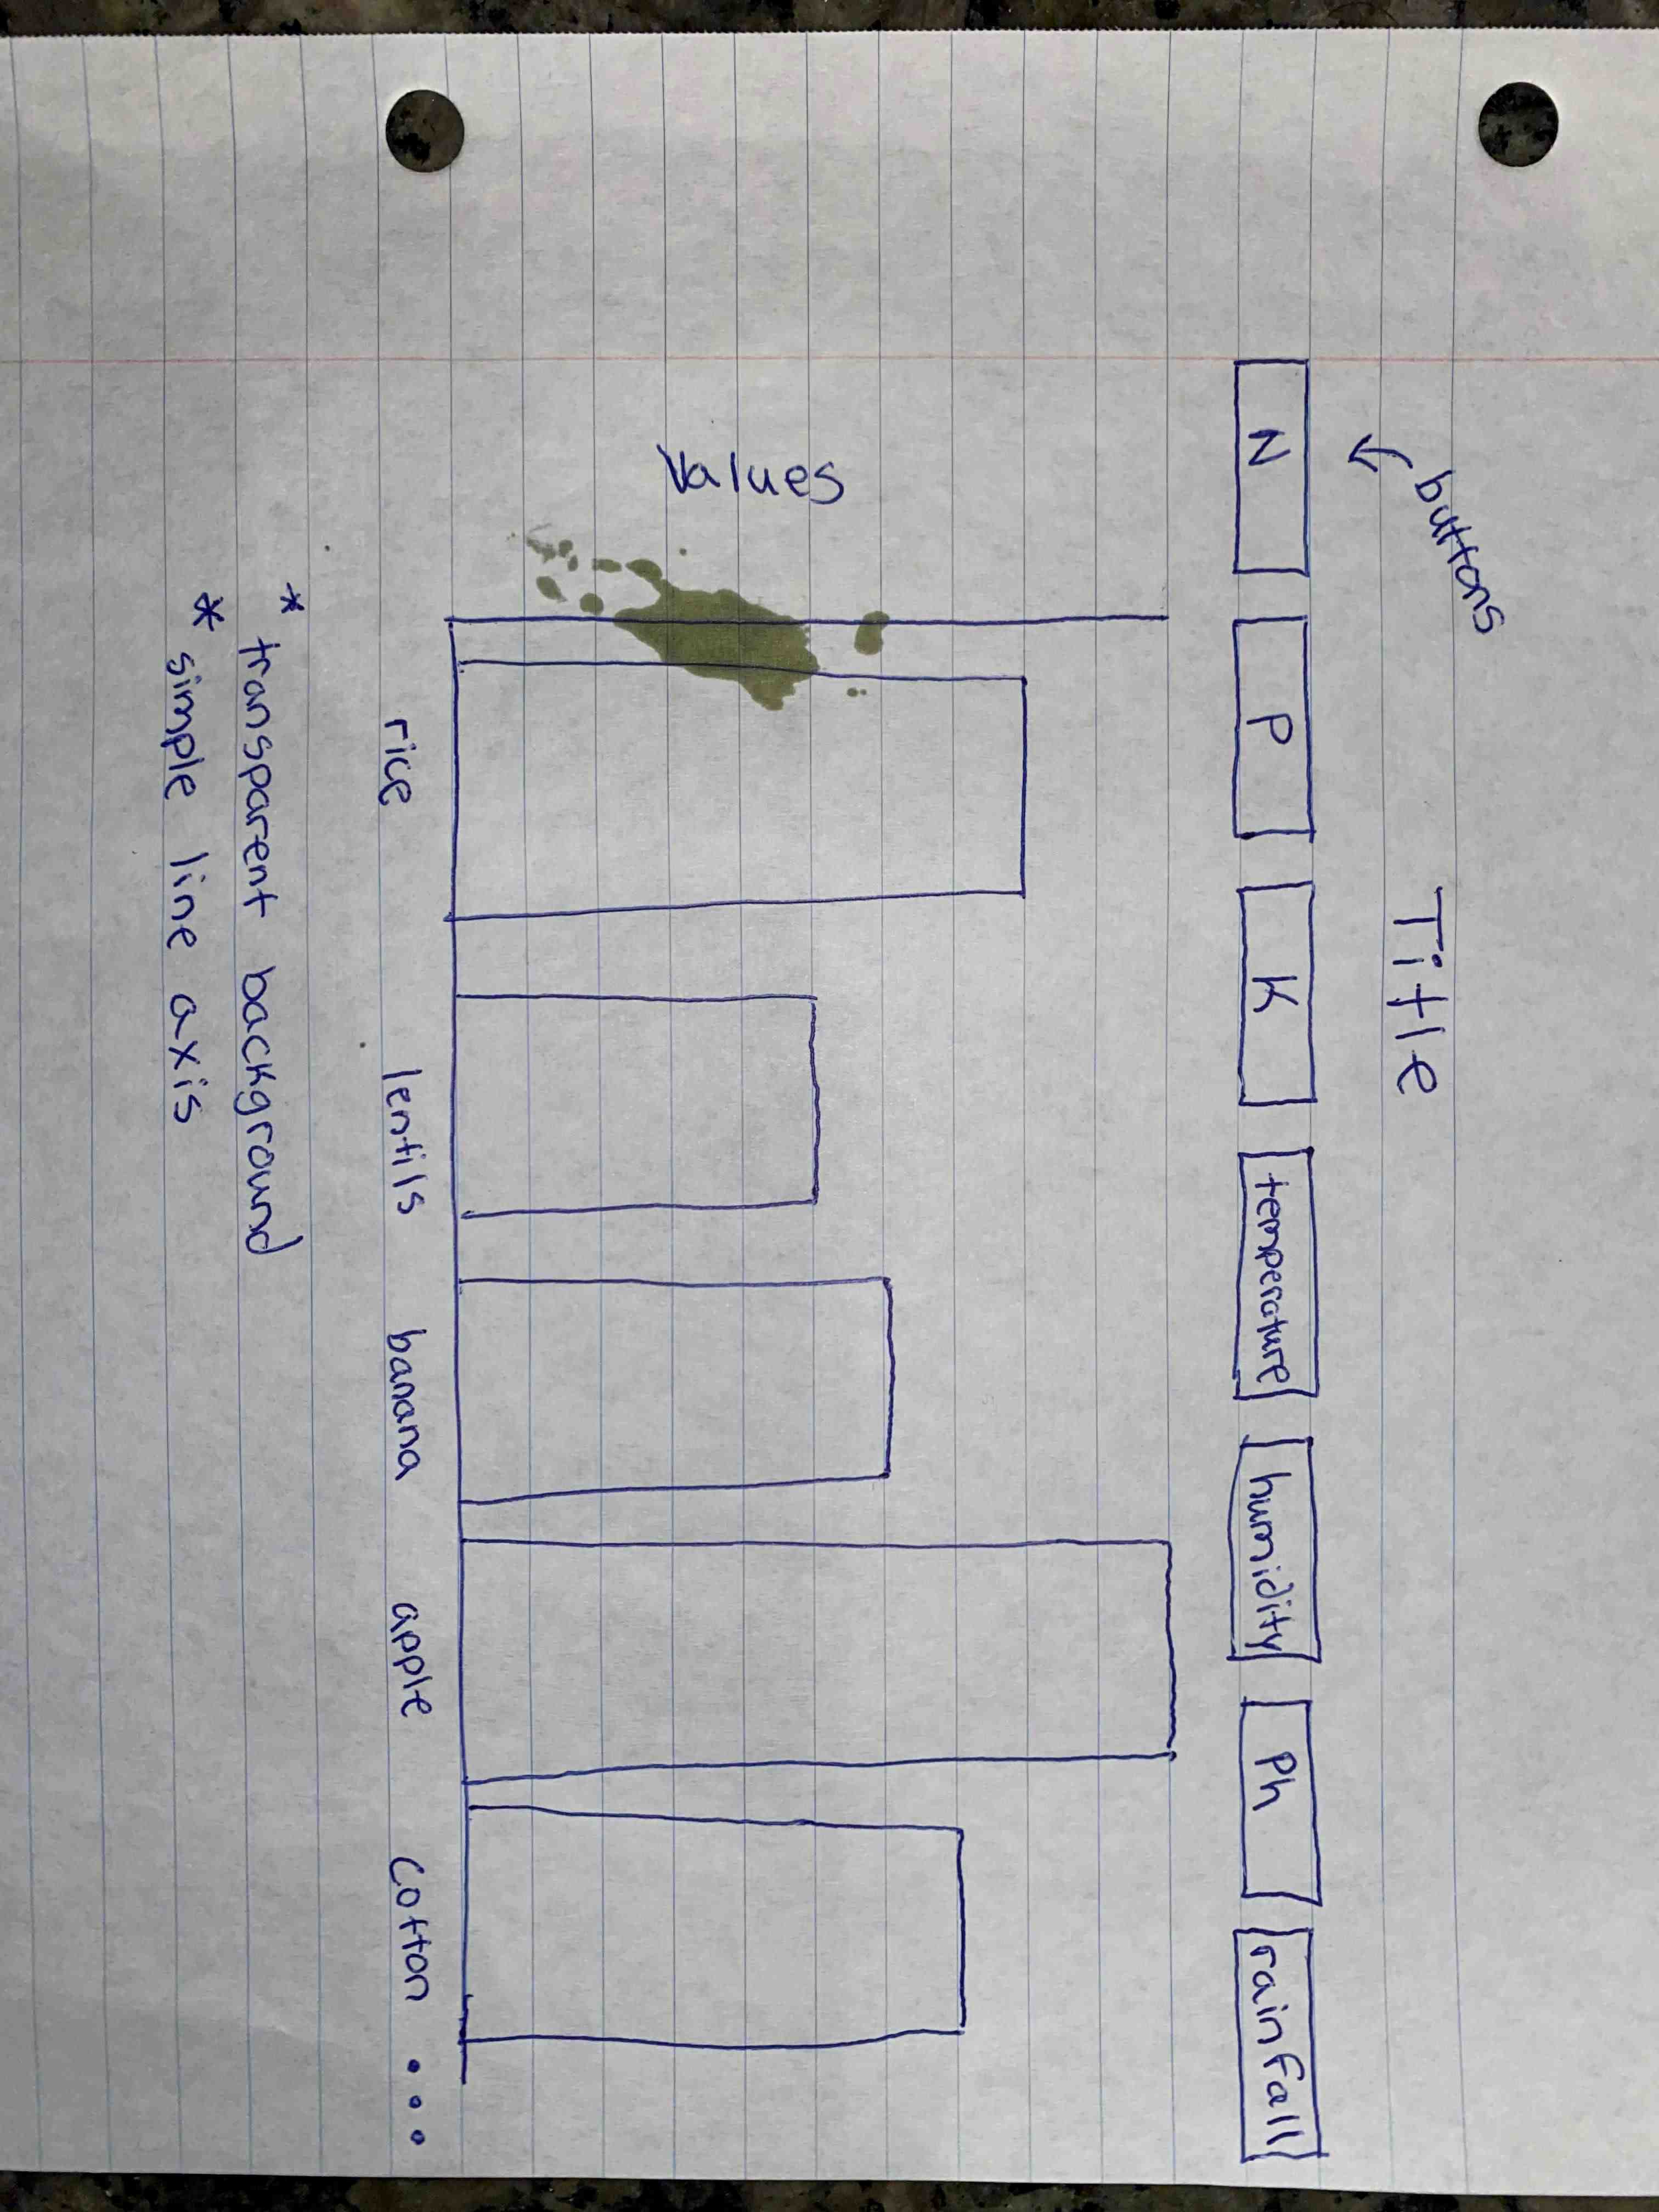 buttons
Title
N P K temperature humidity Ph rainfall
Values
rice lentils banana apple cotton ...
* transparent background
* simple line axis